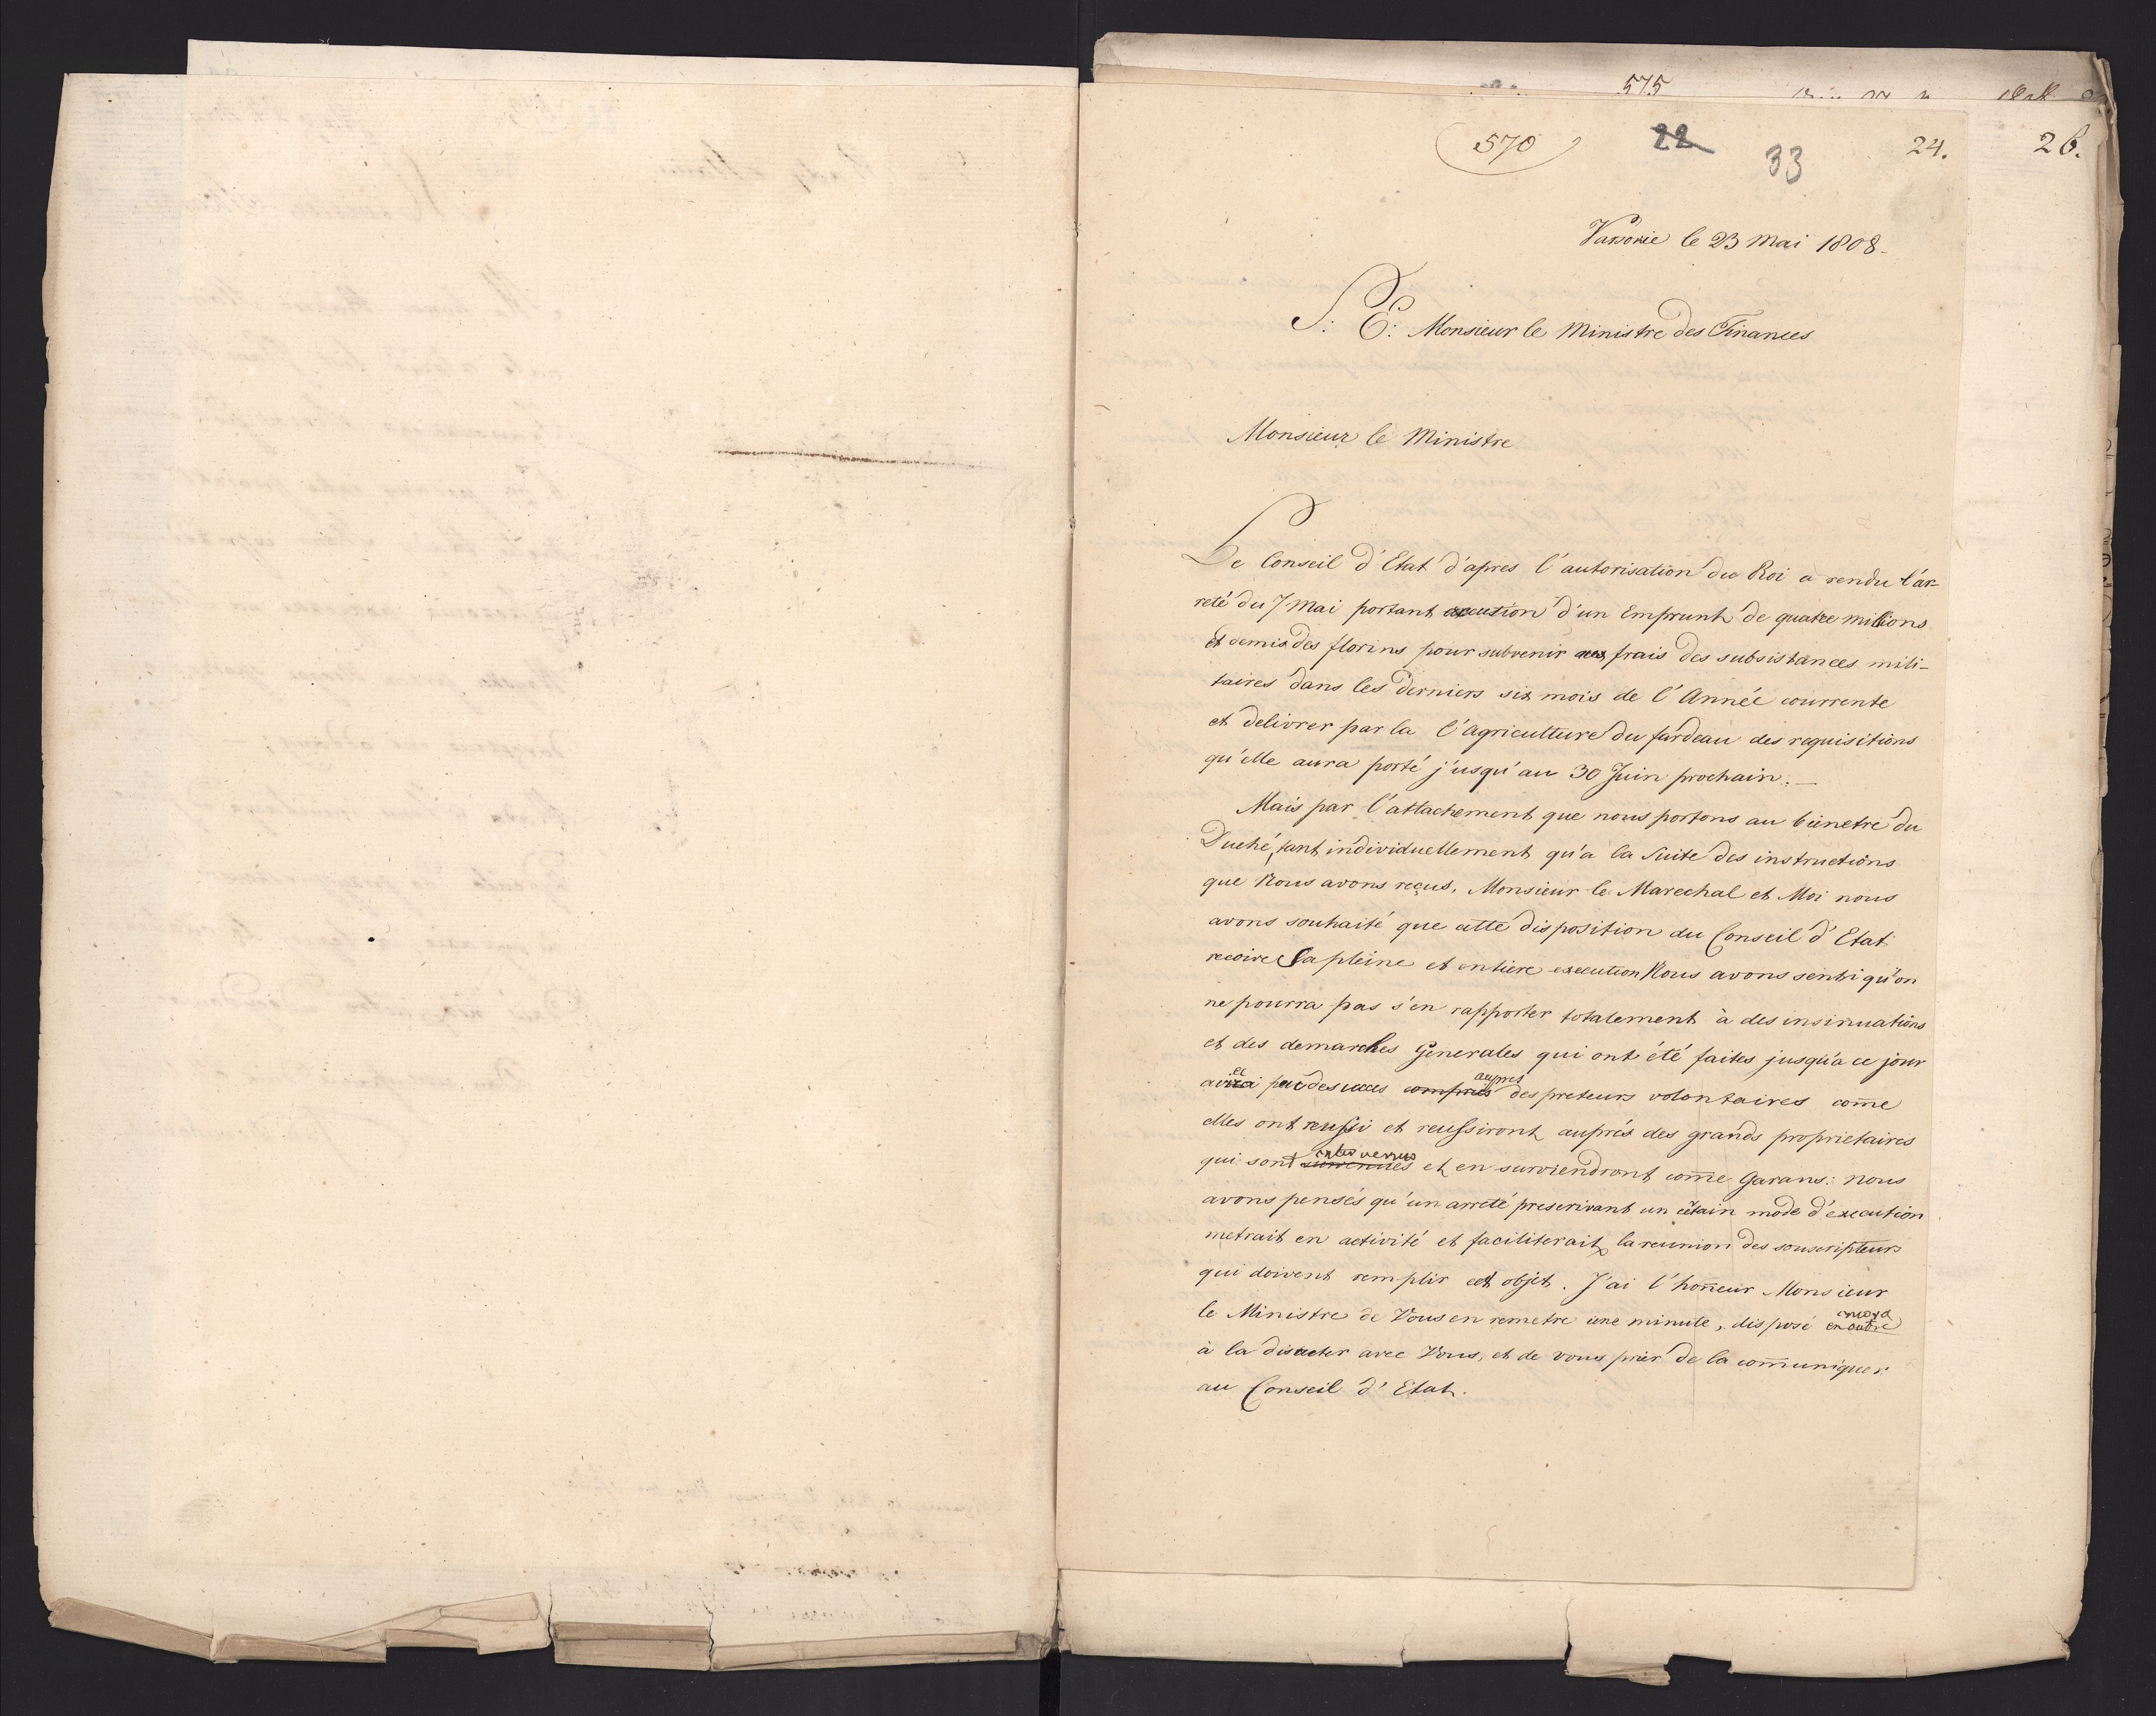 575
570 22 33 24. 26.
Varsovie le 23 Mai 1808.
S: E: Monsieur le Ministre des Finances
Monsieur le Ministre
Le Conseil d'Etat d'apres l'autorisation du Roi a rendu l'ar-
reté du 7 Mai portant execution d'un Emprunt de quatre milions
et demis des florins pour subvenir aux frais des subsistances mili-
taires dans les derniers six mois de l'Année courrente
et delivrer par la l'agriculture du fardeau des requisitions
qu'elle aura porté j'usqu'au 30 Juin prochain. —
Mais par l'attachement que nous portons au bienetre du
Duché, tant individuellement qu'a la Suite des instructions
que Nous avons reçus, Monsieur le Marechal et Moi nous
avons souhaité que cette disposition du Conseil d'Etat
recoive Sa pleine et entiere execution Nous avons senti qu'on
ne pourra pas s'en rapporter totalement à des insinuations
et des demarches Generales qui ont été faites jusqu'a ce jour
et auprès
compris des preteurs volontaires come
elles ont reussi et reussiront auprès des grands proprietaires
intervenus
qui sont survenues et en surviendront come Garans: nous
avons pensés qu'un arreté prescrivant un cértain mode d'execution
metrait en activité et faciliterait la reunion des souscripteurs
qui doivent remplir cet objet. J'ai l'honeur Monsieur
le Ministre de Vous en remetre une minute, disposé en outre
à la discuter avec Vous, et de vous prier de la comuniquer
au Conseil d'Etat.